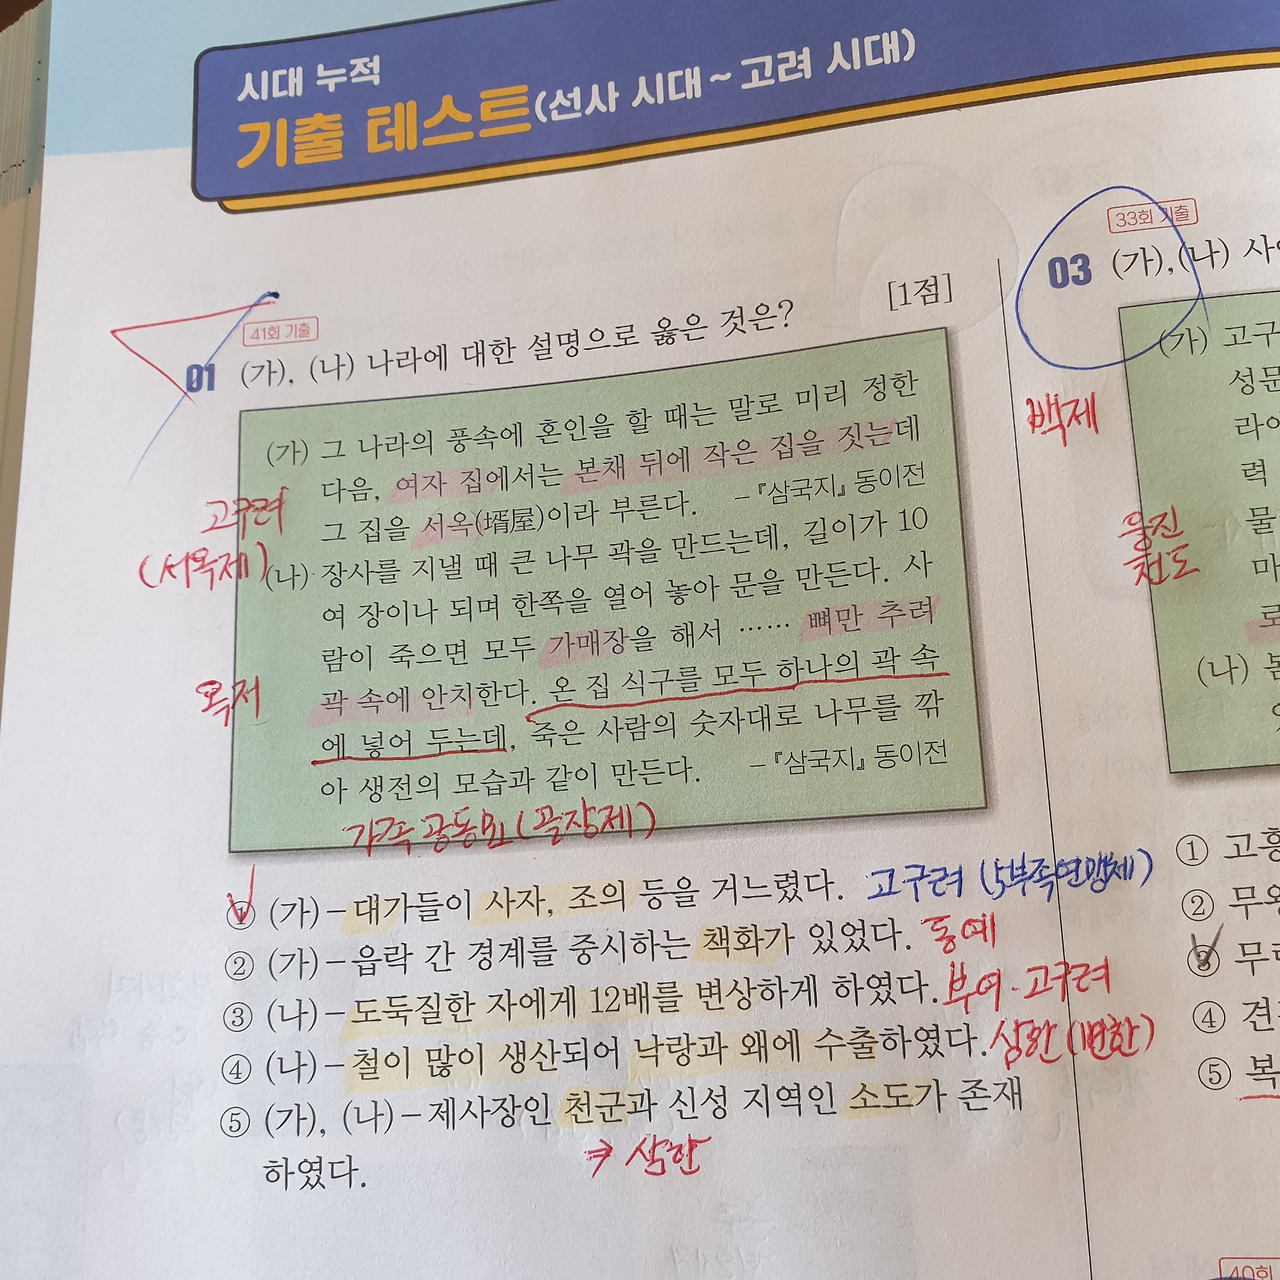 시대 누적
기출 테스트(선사 시대~고려 시대)
41회 기출
01 (가), (나) 나라에 대한 설명으로 옳은 것은? [1점]
(가) 그 나라의 풍속에 혼인을 할 때는 말로 미리 정한
다음, 여자 집에서는 본채 뒤에 작은 집을 짓는데
그 집을 서옥(壻屋)이라 부른다. -『삼국지』 동이전
고구려
(서옥제)
(나) 장사를 지낼 때 큰 나무 곽을 만드는데, 길이가 10
여 장이나 되며 한쪽을 열어 놓아 문을 만든다. 사
람이 죽으면 모두 가매장을 해서 …… 뼈만 추려
곽 속에 안치한다. 온 집 식구를 모두 하나의 곽 속
에 넣어 두는데, 죽은 사람의 숫자대로 나무를 깎
아 생전의 모습과 같이 만든다. -『삼국지』 동이전
옥저
가족 공동묘(골장제)
① (가)-대가들이 사자, 조의 등을 거느렸다. 고구려 (5부족연맹체)
② (가)-읍락 간 경계를 중시하는 책화가 있었다. 동예
③ (나)-도둑질한 자에게 12배를 변상하게 하였다. 부여·고구려
④ (나)-철이 많이 생산되어 낙랑과 왜에 수출하였다. 삼한(변한)
⑤ (가), (나)-제사장인 천군과 신성 지역인 소도가 존재
하였다.
⇒ 삼한
33회 기출
03 (가), (나) 사이
(가) 고구
성문
라이
력
물
마
로
백제
웅진
천도
(나)
① 고흥
② 무왕
③ 무
④ 견
⑤ 복
40회